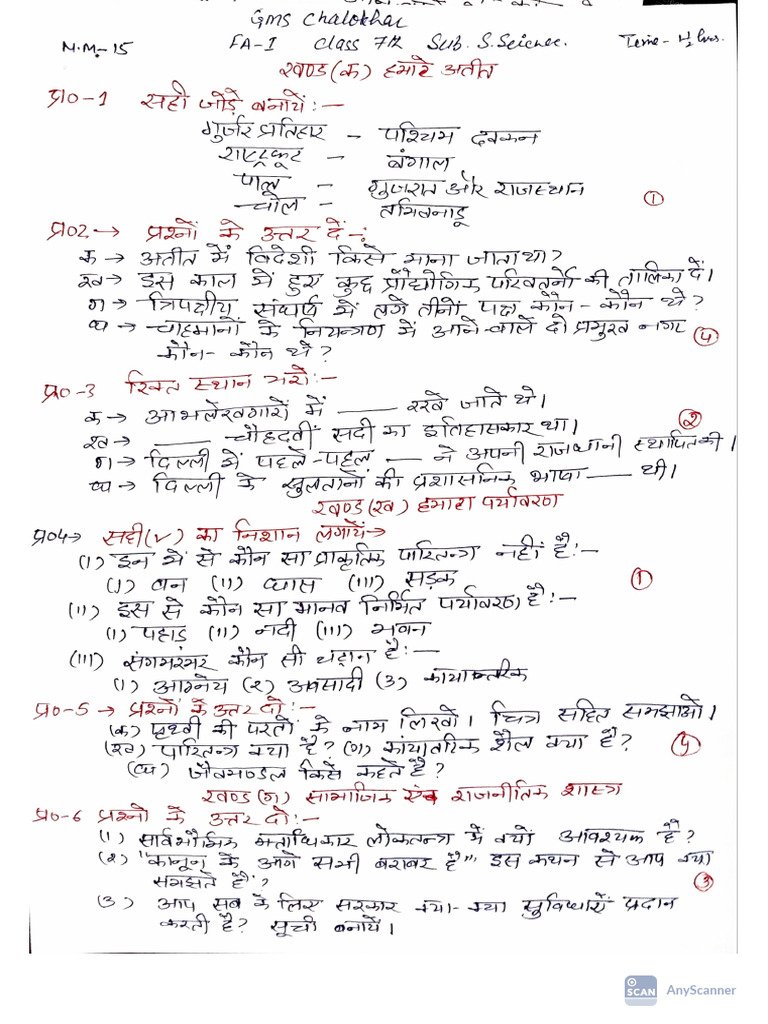 GMS Chalokhar
M.M.-15 FA-I Class 7th Sub. S.Science. Time-1½ hrs.
खण्ड(क) हमारे अतीत
प्र0-1 सही जोड़े बनायें:-
गुर्जर प्रतिहार - पश्चिम दक्कन
राष्ट्रकूट - बंगाल
पाल - गुजरात और राजस्थान
चोल - तमिलनाडू
①
प्र02.→ प्रश्नों के उत्तर दें -:
क→ अतीत में विदेशी किसे माना जाता था?
ख→ इस काल में हुए कुछ प्रौद्योगिक परिवर्तनों की तालिका दें।
ग→ त्रिपक्षीय संघर्ष में लगे तीनों पक्ष कौन-कौन थे?
घ→ चाहमानों के नियन्त्रण में आने वाले दो प्रमुख नगर
कौन-कौन थे?
④
प्र0-3 रिक्त स्थान भरो:-
क→ अभिलेखागारों में ____ रखे जाते थे।
ख→ ____ चौहदवीं सदी का इतिहासकार था।
②
ग→ दिल्ली में पहले-पहल ___ ने अपनी राजधानी स्थापित की।
घ→ दिल्ली के सुलतानों की प्रशासनिक भाषा ___ थी।
खण्ड(ख) हमारा पर्यावरण
प्र04→ सही(✓) का निशान लगायें→
(I) इन में से कौन सा प्राकृतिक पारितन्त्र नहीं है:-
(I) वन (II) घास (III) सड़क
①
(II) इस से कौन सा मानव निर्मित पर्यावरण है:-
(I) पहाड़ (II) नदी (III) भवन
(III) संगमरमर कौन सी चट्टान है:-
(1) आग्नेय (2) अवसादी (3) कायान्तरिक
प्र0-5 → प्रश्नों के उत्तर दो:-
(क) पृथ्वी की परतों के नाम लिखो। चित्र सहित समझाओ।
(ख) पारितन्त्र क्या है? (ग) कायांतरिक शैल क्या है?
④
(घ) जैवमण्डल किसे कहते है?
खण्ड(ग) सामाजिक एवं राजनीतिक शास्त्र
प्र0-6 प्रश्नो के उत्तर दो:-
(1) सार्वभौमिक मताधिकार लोकतन्त्र में क्यों आवश्यक है?
(2) "कानून के आगे सभी बराबर है" इस कथन से आप क्या
समझते है?
③
(3) आप सब के लिए सरकार क्या-क्या सुविधाएँ प्रदान
करती है? सूची बनायें।
SCAN AnyScanner